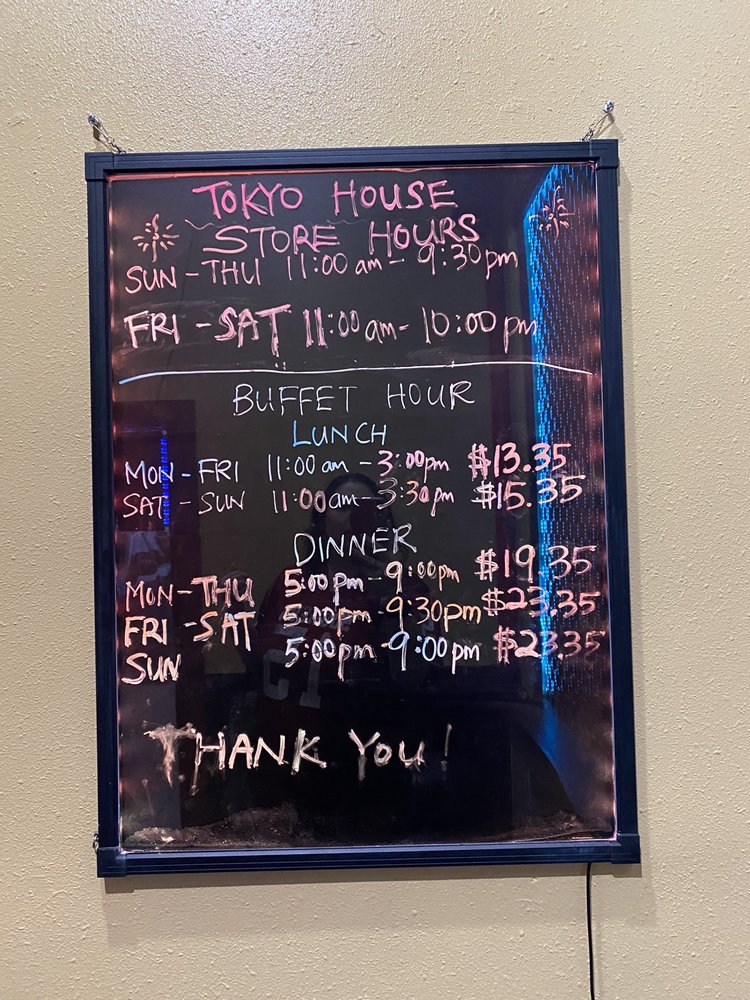 TOKYO HOUSE
STORE HOURS
SUN - THU 11:00 am - 9:30 pm
FRI - SAT 11:00 am - 10:00 pm
BUFFET HOUR
LUNCH
MON - FRI 11:00 am - 3:00pm $13.35
SAT - SUN 11:00am - 3:30 pm $15.35
DINNER
MON - THU 5:00 pm - 9:00 pm $19.35
FRI - SAT 5:00pm - 9:30pm $23.35
SUN 5:00pm - 9:00 pm $23.35
THANK YOU!